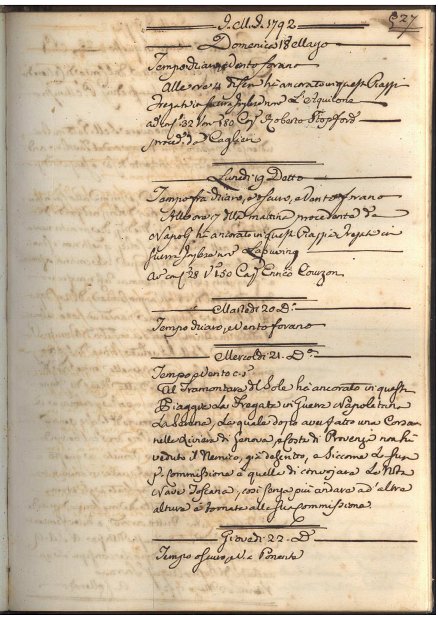 527
J.M.J. 1792
Domenica 18 Maggio
Tempo chiaro, e Vento forano
Alle ore 4 di sera ha ancorato in questi Piaggi
Fregata in Guerra Inglese n.e L'Aquilone
Cap. Roberto Stopford
proced.e da Caglieri
Lunedi 19 Detto
Tempo fra chiaro, e oscuro, e Vento forano
Alle ore 7 della mattina procedente da
Napoli ha ancorato in questi Piaggi Fregata in
Guerra Inglese n.e
28 150 Cap. Enrico Courzon
Martedi 20 D.o
Tempo chiaro, e Vento forano
Mercoldi 21. D.o
Tempo e Vento c. s.
Al Tramontare del Sole ha ancorato in questi
Piaggie la Fregata in Guerra Napoletana
La Sirena, la quale dopo aver fatto una Corsa
nelle riviere di Genova, e Coste di Provenza non ha
veduto il Nemico, già descritto, e siccome la sua
p. commissione è quella di convojare la
Nave Toscana, così senza più andare ad'altre
alture è tornata alla sua commissione
Giovedi 22. D.o
Tempo oscuro, e V.o Ponente